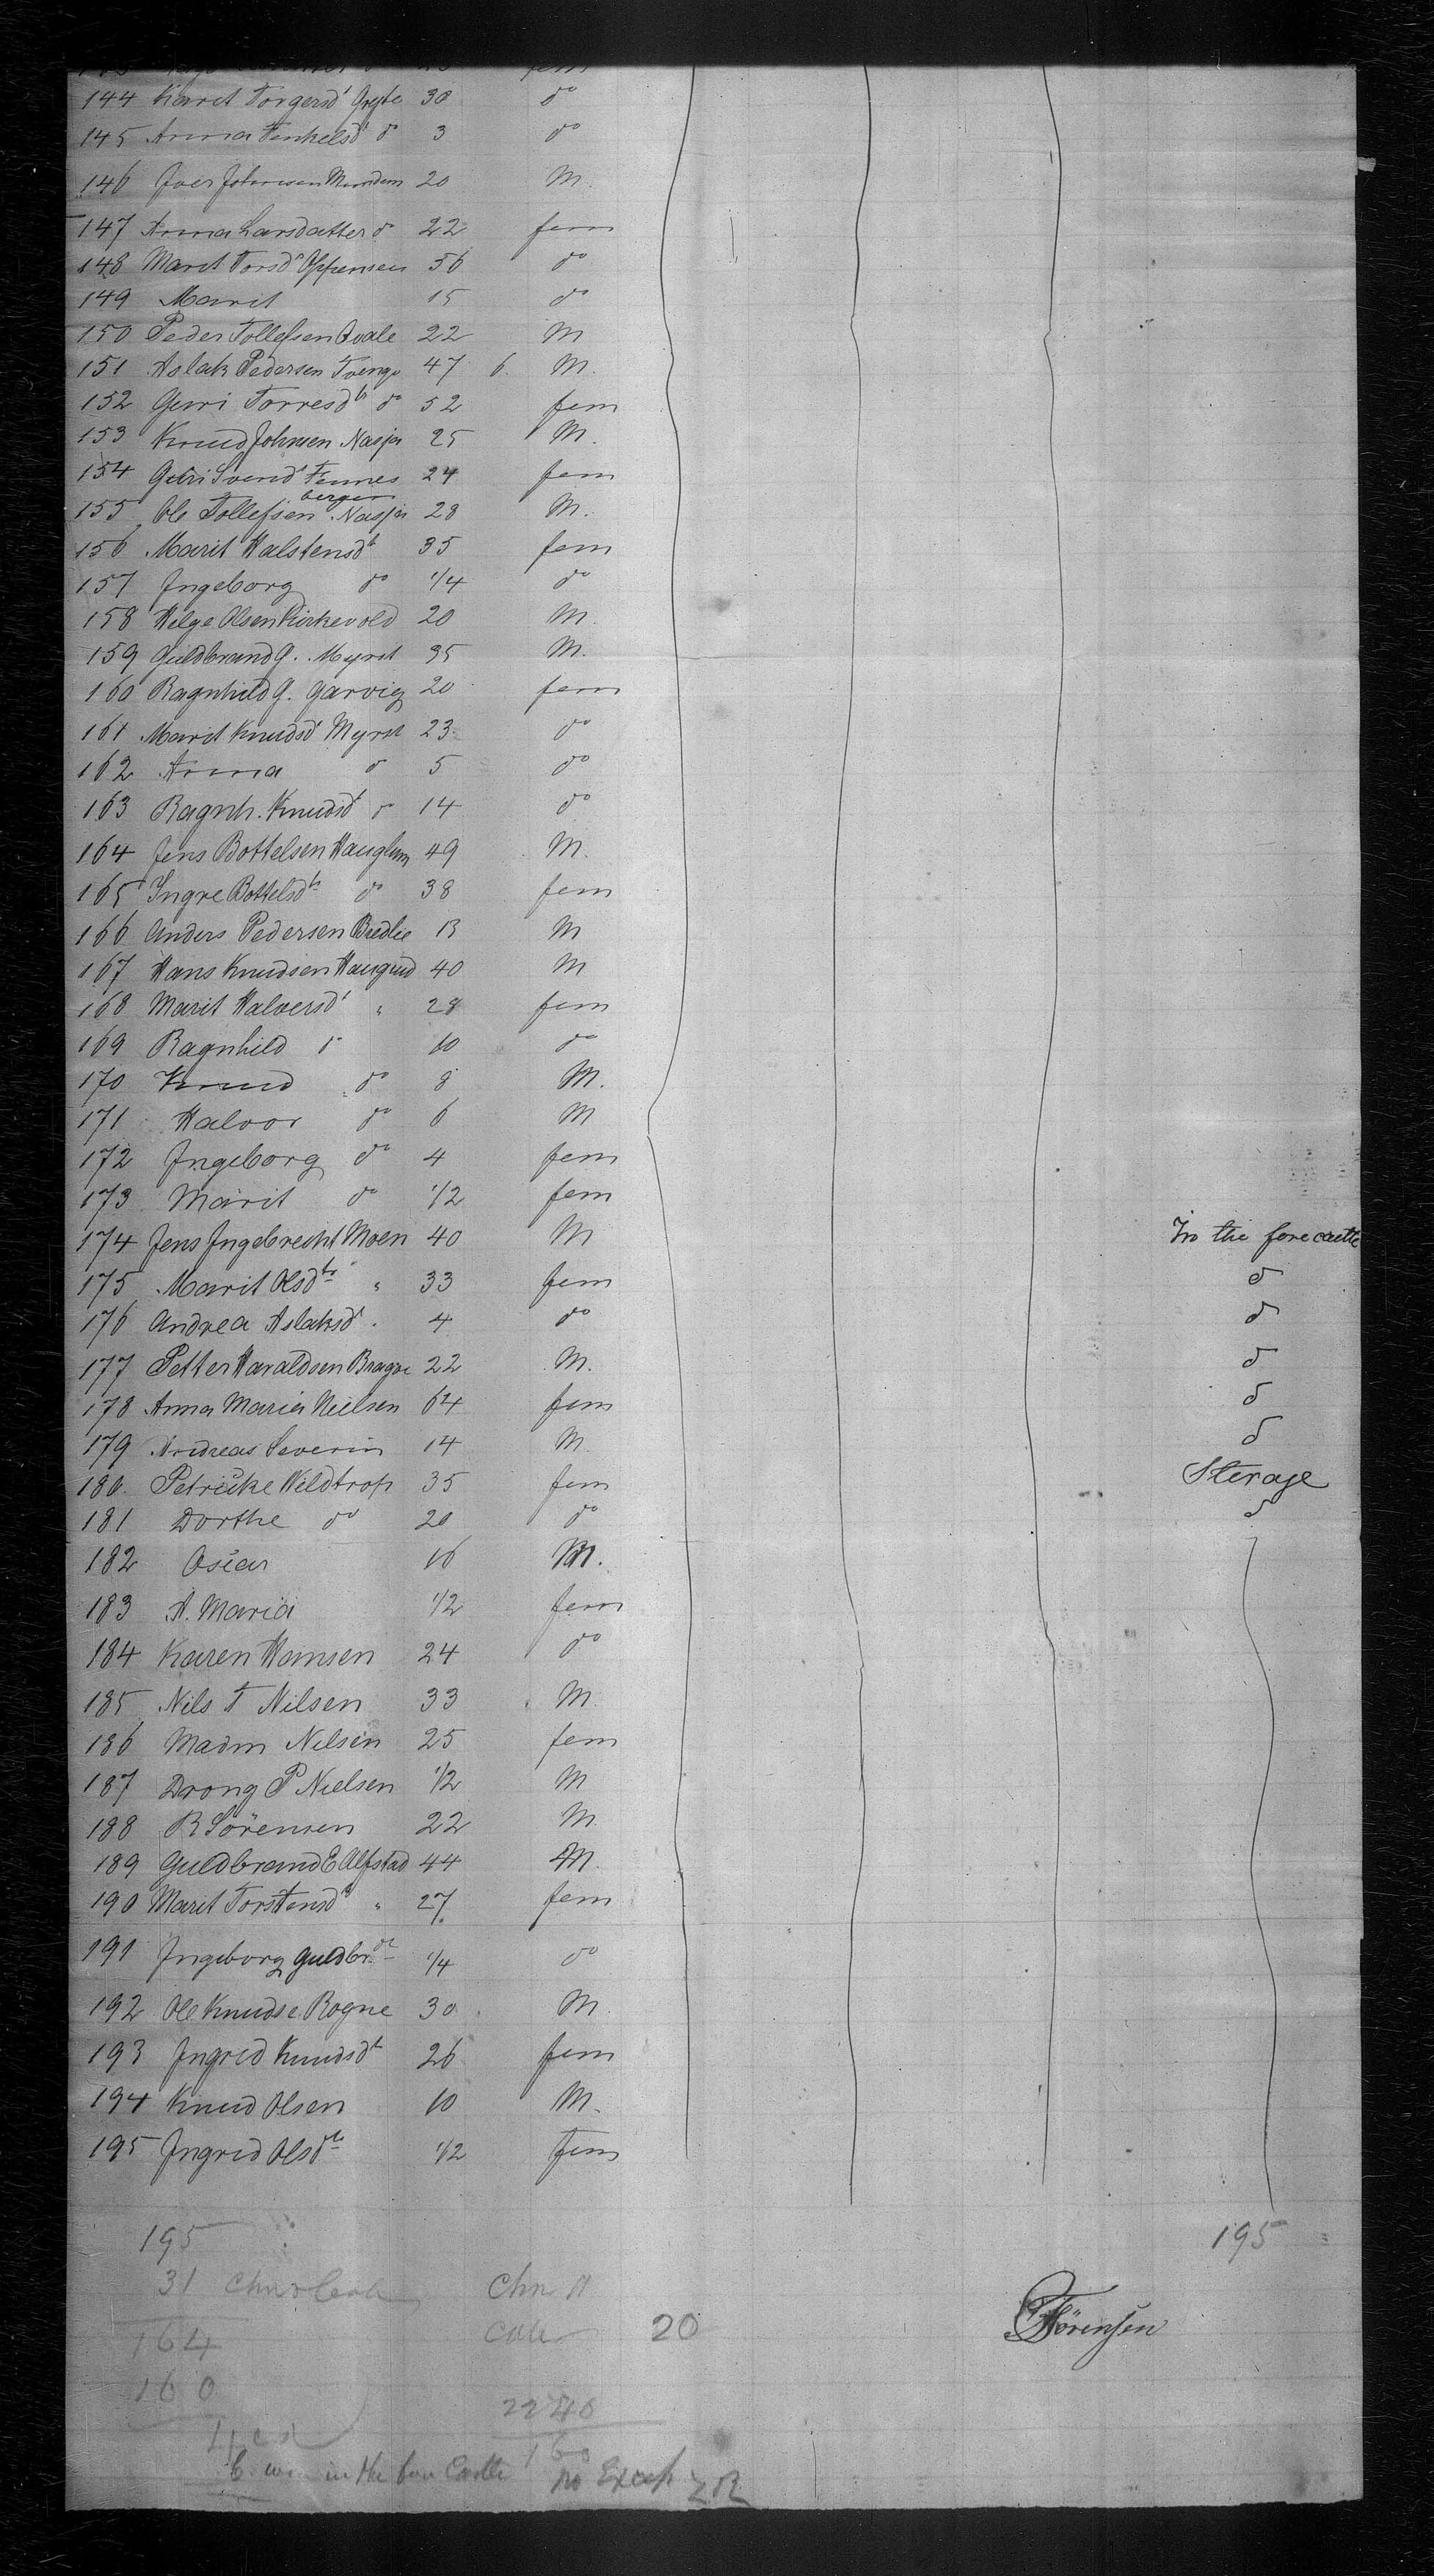 144 Marit Torgersd Grefte 30 do
145 Anna Tenkelsd do 3 do
146 Iver Johnsen Mundem 20 M.
147 Anna Larsdatter do 22 fem
148 Marit Torsdr Oppensen 56 do
149 Marit 15 do
150 Peder Tollefsen Qvale 22 M
151 Aslak Pedersen Tvenge 47 6. M.
152 Guri Torresdtr do 52 fem
153 Knud Johnsen Nasja 25 M.
154 Guri Svendr Fennes 24 fem
bergen
155 Ole Tollefsen Nasja 28 M.
156 Marit Halstensdt 35 fem
157 Ingeborg do 1/4 do
158 Helge Olsen Kirkevold 20 M.
159 Guldbrand G. Myrst 35 M.
160 Ragnhild G. Garvig 20 fem
161 Marit Knudsd Myrst 23 do
162 Anna do 5 do
163 Ragnh. Knudsd do 14 do
164 Jens Bottelsen Hauglum 49 M.
165 Ingre Bottelsdtr do 38 fem
166 Anders Pedersen Bredlie 13 M
167 Hans Knudsen Haugrud 40 M
168 Marit Halversd " 28 fem
169 Ragnhild do 10 do
170 Knud do 8 M.
171 Halvor do 6 M
172 Ingeborg do 4 fem
173 Marit do 1/2 fem
174 Jens Ingebrecht Moen 40 M In the forecastle
175 Marit Olsdtr " 33 fem do
176 Andrea Aslaksd . 4 do do
177 Petter Haraldsen Bragve 22 M. do
178 Anna Maria Nielsen 64 fem do
179 Andreas Severin 14 M do
180. Petricke Wildtrop 35 fem Sterage
181 Dorthe do 20 do do
182 Oscar 16 M.
183 A. Maria 1/2 fem
184 Karen Hansen 24 do
185 Nils T Nilsen 33 M.
186 Madm Nelsen 25 fem
187 Drong P Nielsen 1/2 M
188 R Sörensen 22 M.
189 Guldbrand E Alfstad 44 M.
190 Marit Torstensd " 27. fem
191 Ingeborg Guldbr.dt 1/4 do
192 Ole Knudse Rogne 30. M.
193 Ingrid Knudsdt 26 fem
194 Knud Olsen 10 M.
195 Ingrid Olsdtr 1/2 fem
195 195
31
164 20 Sörensen
160
2240
160
6 in the fore Castle no Except